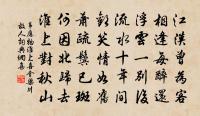 江漢曾為客
相逢每醉還
浮雲一別後
流水十年間
歡笑情如舊
蕭疏鬢已斑
何因北歸去
淮上對秋山
韋應物淮上喜會梁川
故人詞典網書